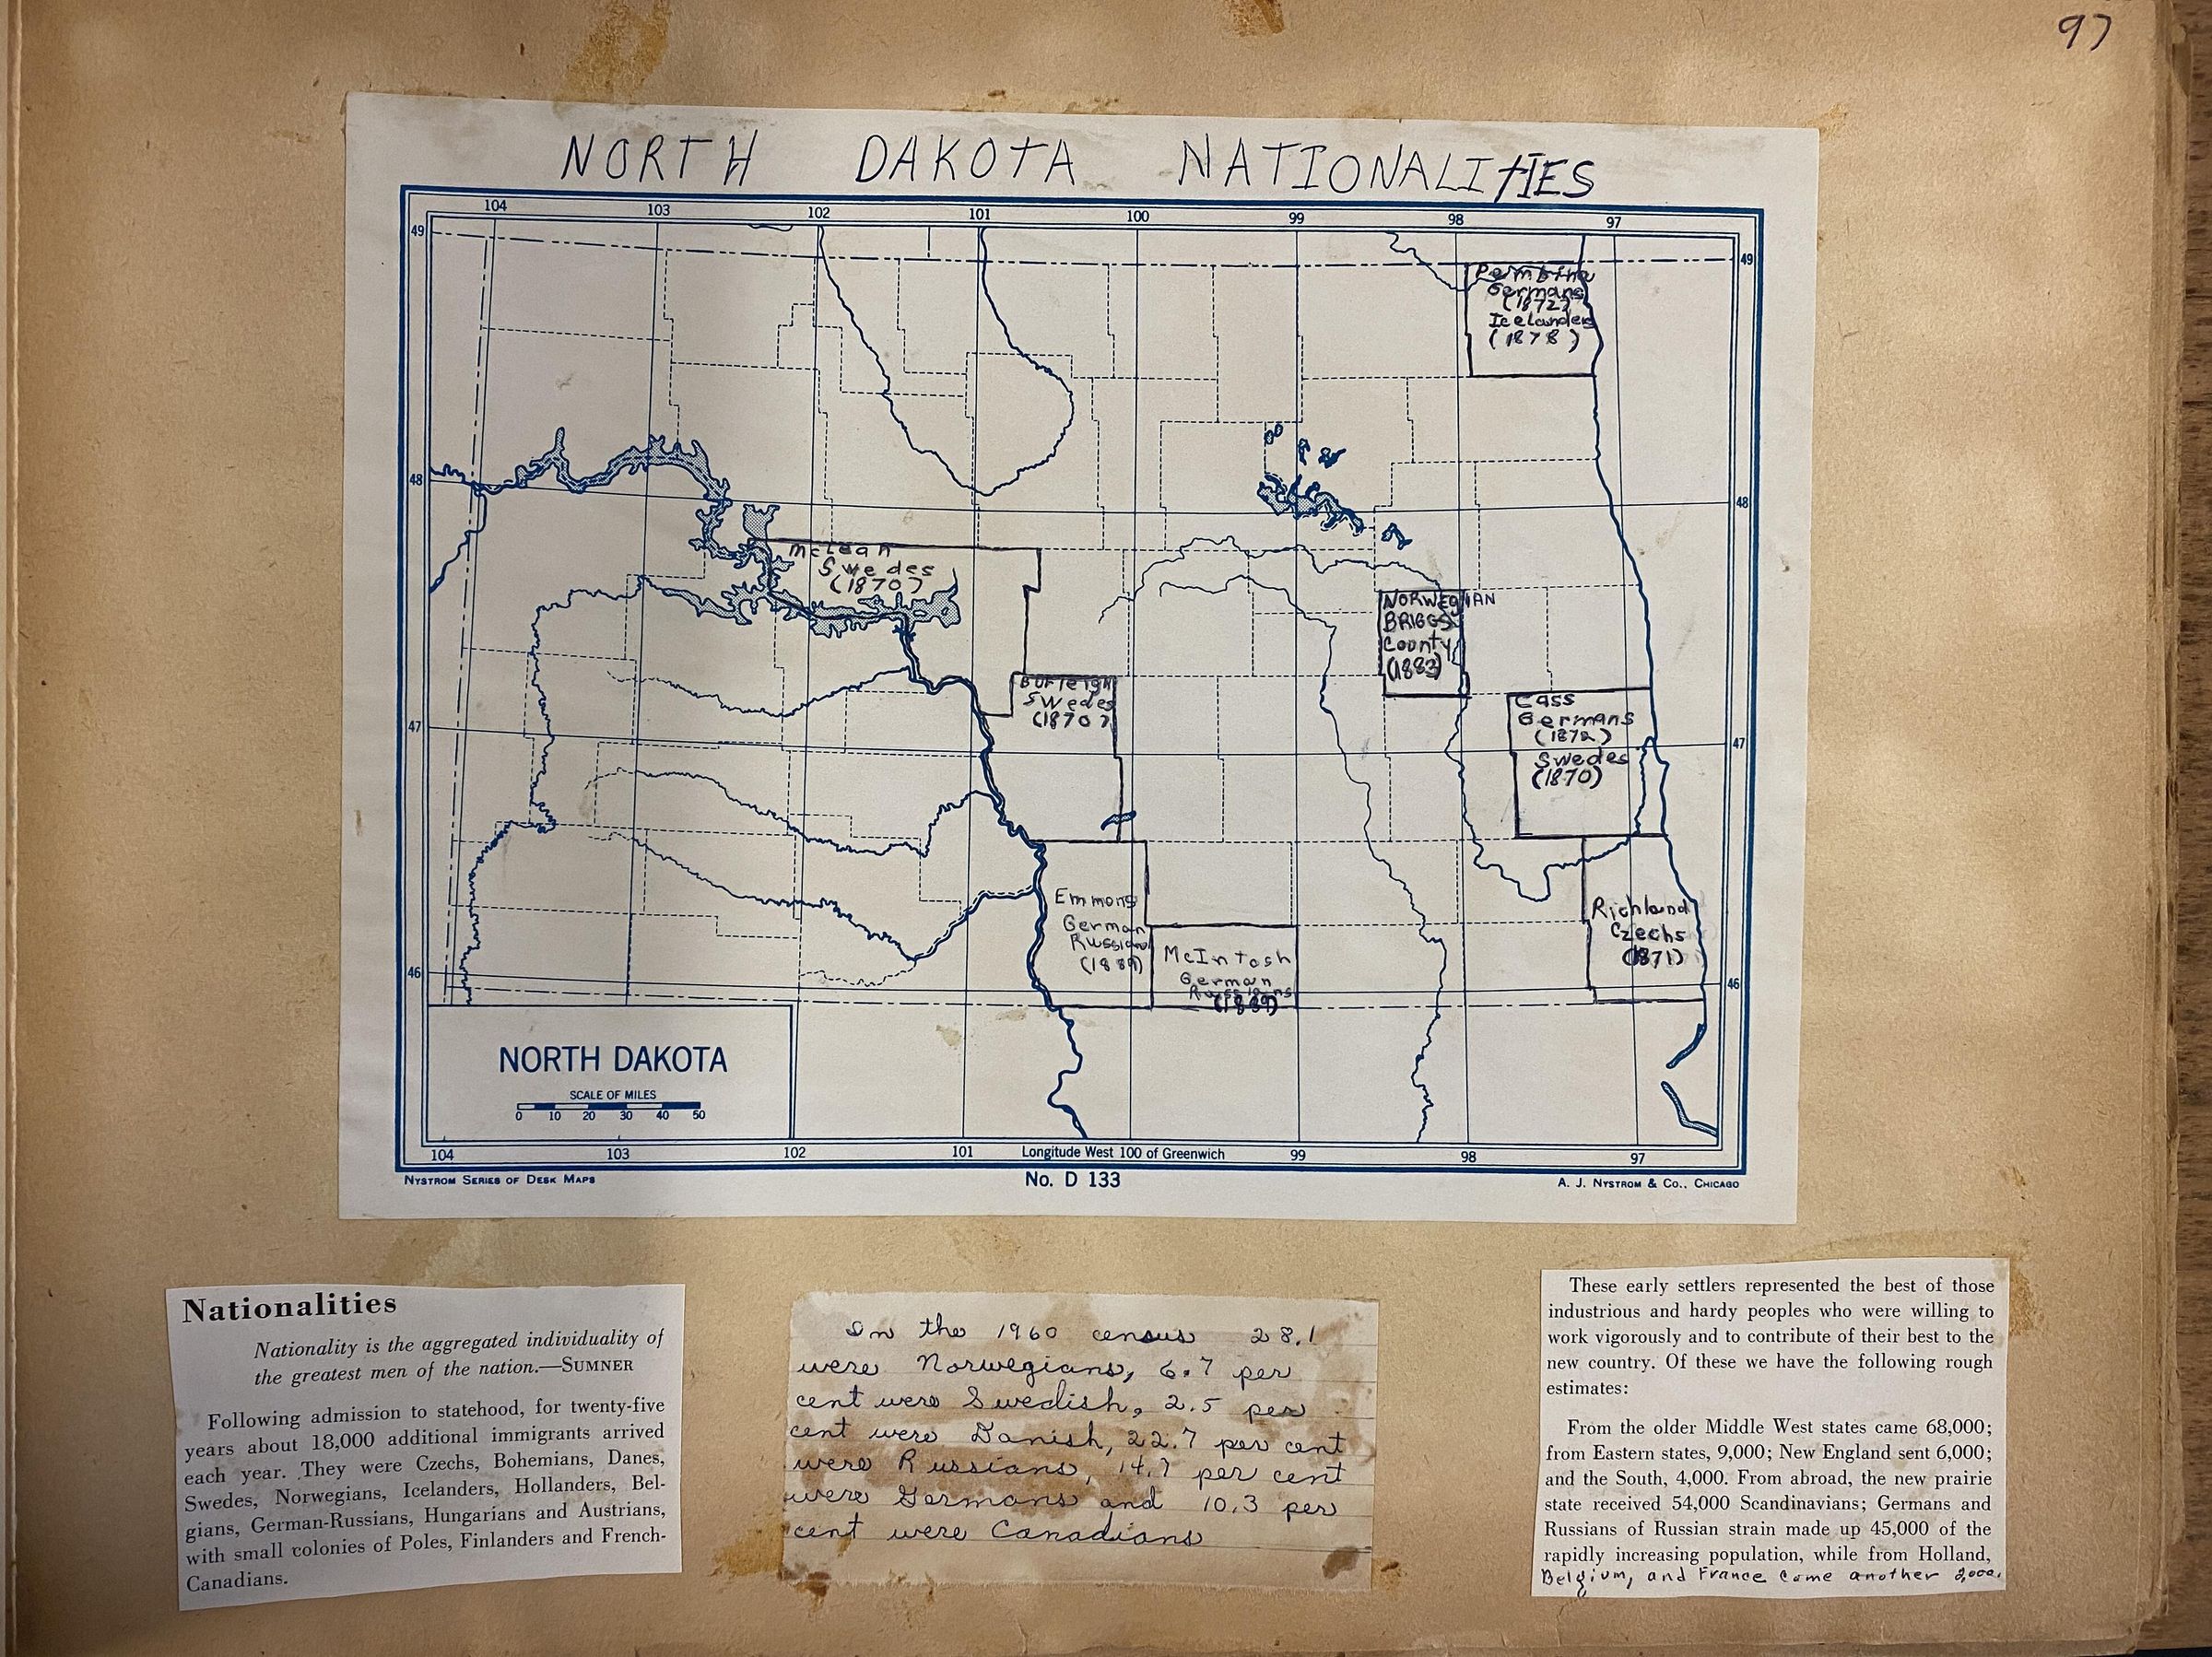 97
NORTH DAKOTA NATIONALITIES
104 103 102 101 100 99 98 97
49 49
Pembina
Germans
(1872)
Icelanders
(1878)
48 48
McLean
Swedes
(1870)
NORWEGIAN
BRIGGS
County
(1883)
Burleigh
Swedes
(1870)
Cass
Germans
(1872)
Swedes
(1870)
47 47
Emmons
German
Russians
(1889)
McIntosh
German
Russians
(1889)
Richland
Czechs
(1871)
46 46
NORTH DAKOTA
SCALE OF MILES
0 10 20 30 40 50
104 103 102 101 Longitude West 100 of Greenwich 99 98 97
NYSTROM SERIES OF DESK MAPS No. D 133 A. J. NYSTROM & CO., CHICAGO
Nationalities
Nationality is the aggregated individuality of
the greatest men of the nation.—SUMNER
Following admission to statehood, for twenty-five
years about 18,000 additional immigrants arrived
each year. They were Czechs, Bohemians, Danes,
Swedes, Norwegians, Icelanders, Hollanders, Bel-
gians, German-Russians, Hungarians and Austrians,
with small colonies of Poles, Finlanders and French-
Canadians.
In the 1960 census 28.1
were Norwegians, 6.7 per
cent were Swedish, 2.5 per
cent were Danish, 22.7 per cent
were Russians, 14.7 per cent
were Germans and 10.3 per
cent were Canadians
These early settlers represented the best of those
industrious and hardy peoples who were willing to
work vigorously and to contribute of their best to the
new country. Of these we have the following rough
estimates:
From the older Middle West states came 68,000;
from Eastern states, 9,000; New England sent 6,000;
and the South, 4,000. From abroad, the new prairie
state received 54,000 Scandinavians; Germans and
Russians of Russian strain made up 45,000 of the
rapidly increasing population, while from Holland,
Belgium, and France came another 2,000.